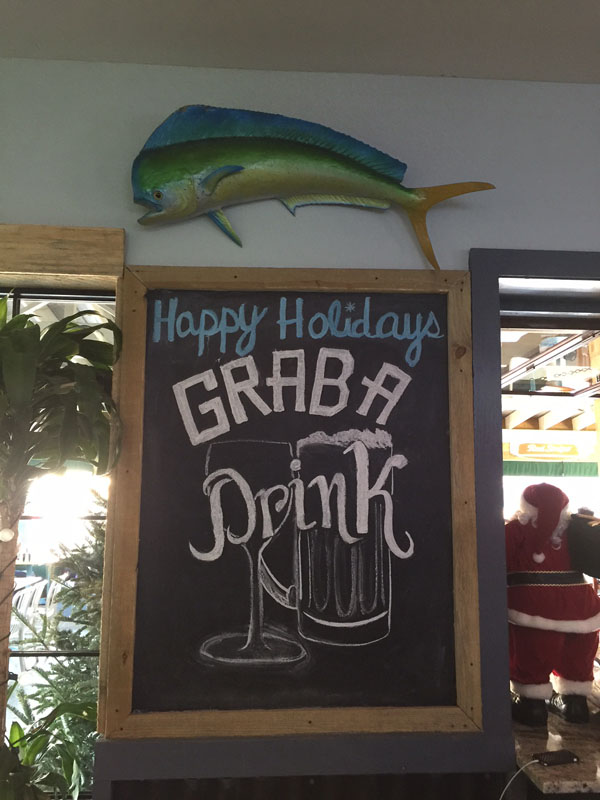 Happy Holidays
GRABA
Drink